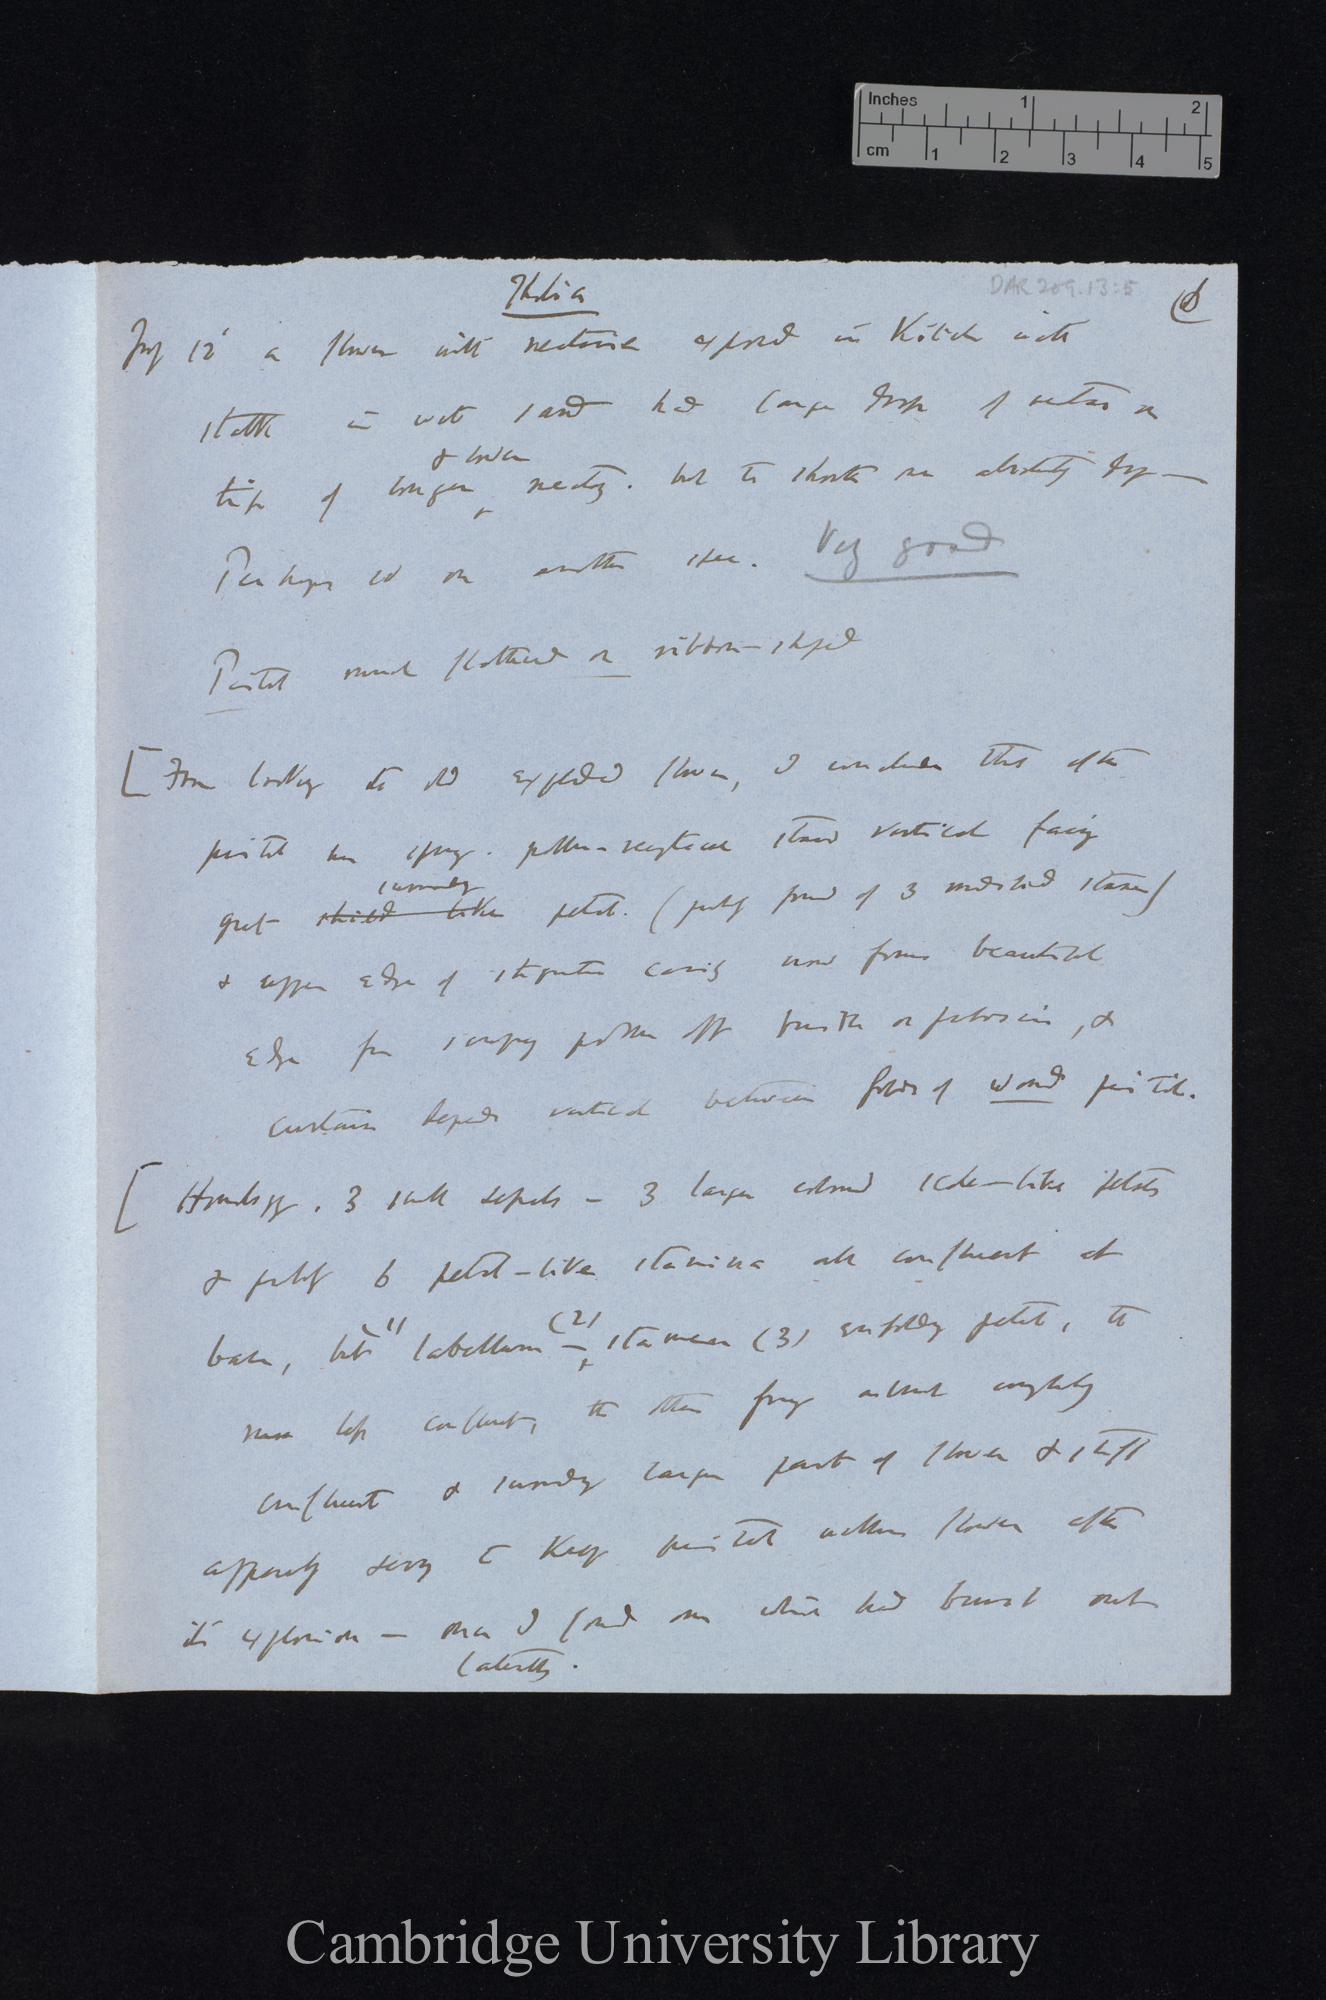 Inches 1 2
cm 1 2 3 4 5
DAR 209.13:5
Thalia
12 a flower with nectaries exposed in Kitchen with
stalk in wet sand had large drop of nectar on
& lower
tip of longer nectary. but the shorter one absolutely dry —
Perhaps so on another spec. Very good
Pistil much flattened or ribbon-shaped
[From looking to old exploded flower, I conclude that after
pistil has sprung. pollen-receptacle stands vertical facing
surrounding
great shield like petal. (partly formed of 3 modified stamens)
& upper edge of stigmatic cavity now forms beautiful
edge for scraping pollen off bristle or proboscis, &
curtain depends vertical between folds of wound pistil.
[Homology. 3 small sepals — 3 larger coloured scale-like petals
& partly 6 petal-like stamina all confluent at
(1)
(2)
base, but labellum — stamen (3) enfolding petal, the
less confluent, the other forming almost completely
confluent & surrounding larger part of flower & stiff
apparently serving to keep pistil within flower after
its explosion — once I found one which had burst out
laterally.
Cambridge University Library